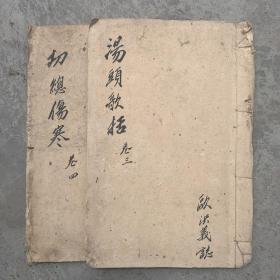 湯頭歌括
卷三
歐洪義誌
切總傷寒
卷四